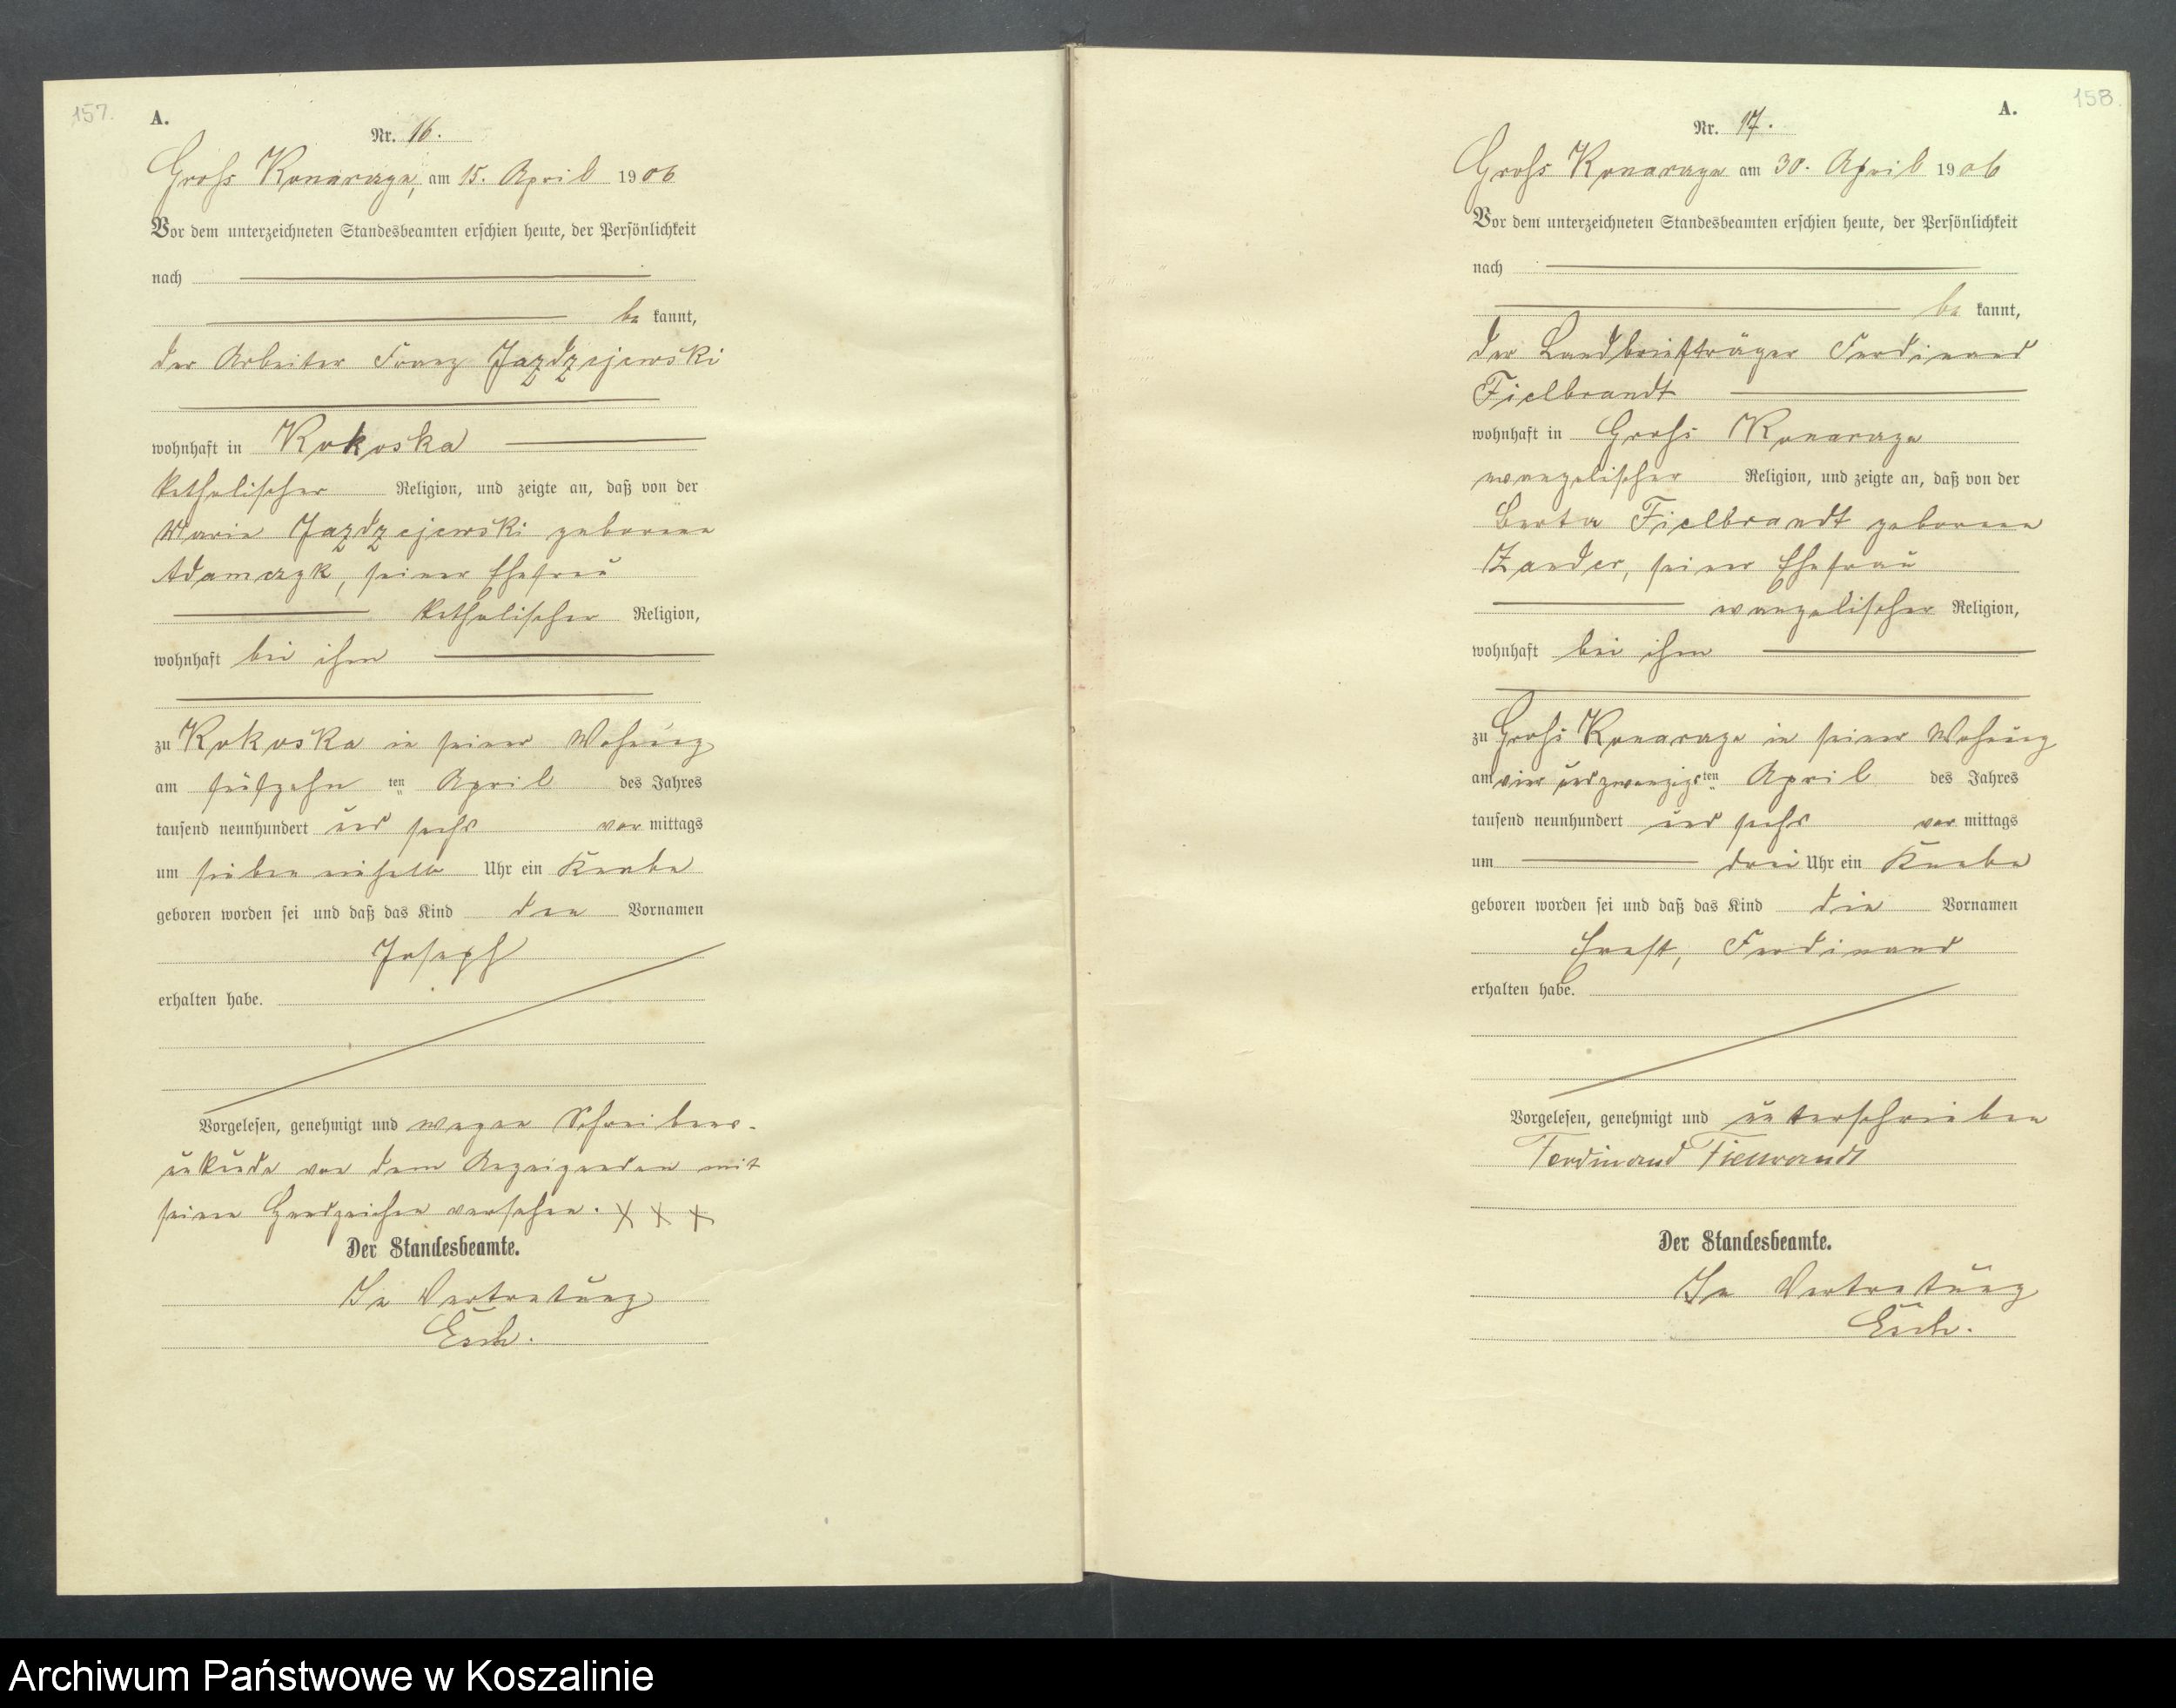 157.
A.
Nr. 16.
Gross Konarzyn, am 15. April 1906
Vor dem unterzeichneten Standesbeamten erschien heute, der Persönlichkeit
nach
be kannt,
der Arbeiter Franz Jazdzejewski
wohnhaft in Kokoska
katholischer Religion, und zeigte an, daß von der
Marie Jazdzejewski geborene
Adamczyk, seiner Ehefrau
katholischer Religion,
wohnhaft bei ihm
zu Kokoska in seiner Wohnung
am fünfzehn ten April des Jahres
tausend neunhundert und sechs vor mittags
um sieben einhalb Uhr ein Knabe
geboren worden sei und daß das Kind den Vornamen
Joseph
erhalten habe.
Vorgelesen, genehmigt und wegen Schreibens-
unkunde von dem Anzeigenden mit
seinen Handzeichen versehen. X X X
Der Standesbeamte.
In Vertretung
Esch.
158.
A.
Nr. 17.
Gross Konarzyn am 30. April 1906
Vor dem unterzeichneten Standesbeamten erschien heute, der Persönlichkeit
nach
be kannt,
der Landbriefträger Ferdinand
Fielbrandt
wohnhaft in Gross Konarzyn
evangelischer Religion, und zeigte an, daß von der
Berta Fielbrandt geborene
Zander, seiner Ehefrau
evangelischer Religion,
wohnhaft bei ihm
zu Gross Konarzyn in seiner Wohnung
am vier und zwanzigsten April des Jahres
tausend neunhundert und sechs vor mittags
um drei Uhr ein Knabe
geboren worden sei und daß das Kind die Vornamen
Ernst, Ferdinand
erhalten habe.
Vorgelesen, genehmigt und unterschrieben
Ferdinand Fielbrandt
Der Standesbeamte.
In Vertretung
Esch.
Archiwum Państwowe w Koszalinie